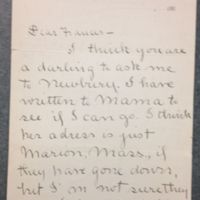 Dear Frances —
I think you are
a darling to ask me
to Newbury. I have
written to Mama to
see if I can go. I think
her adress is just
Marion, Mass., if
they have gone down,
but I'm not sure they